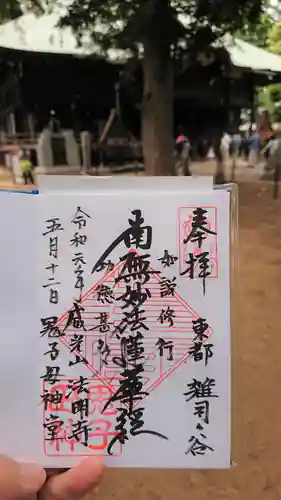 奉拝
東都 雑司ヶ谷
如説修行
南無妙法蓮華経
令和元年 威光山 法明寺
五月十二日 鬼子母神堂